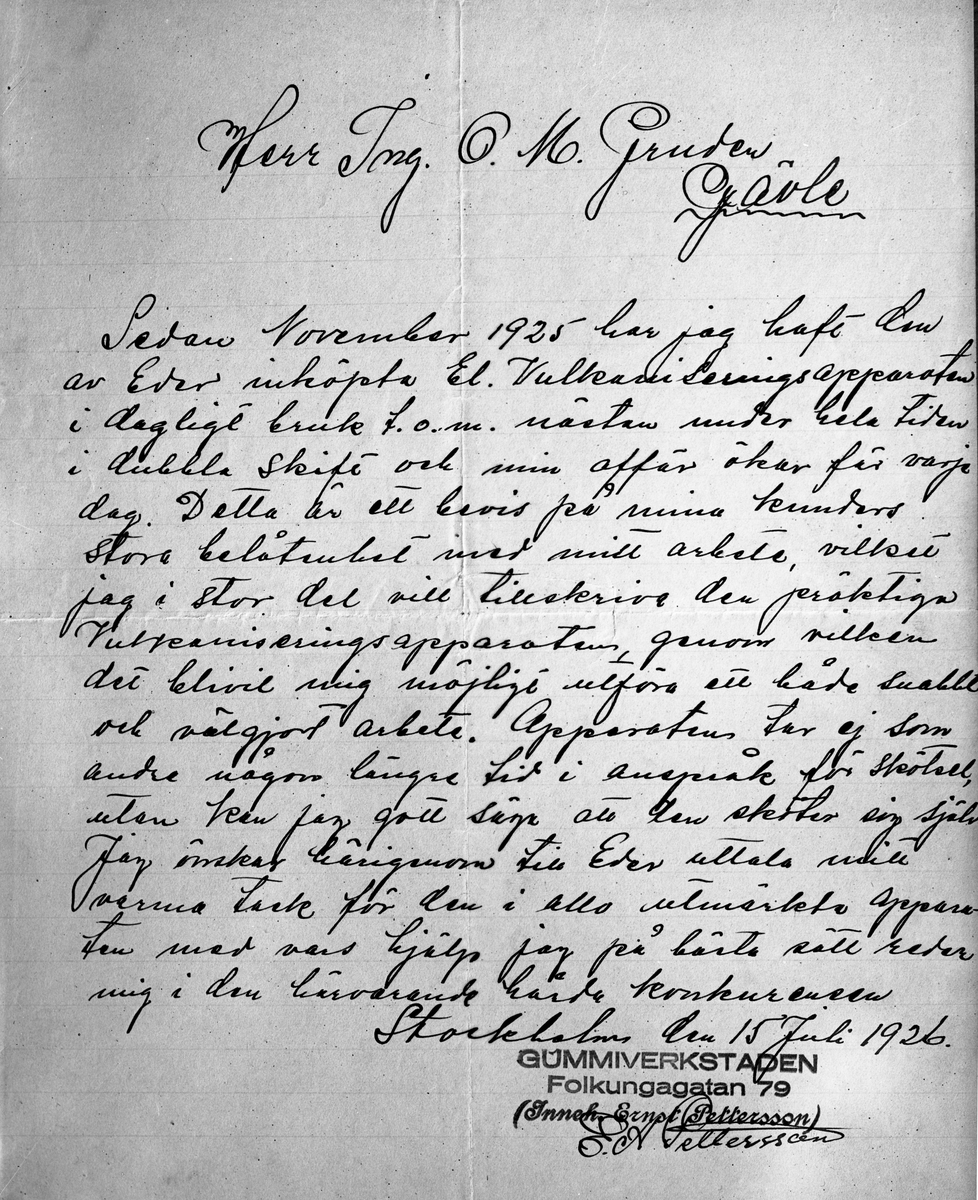 Herr Ing. O. M. Gruden
Gävle
Sedan November 1925 har jag haft den
av Eder inköpta El. Vulkaniseringsapparaten
i dagligt bruk t.o.m. nästan under hela tiden
i dubbla skift och min affär ökar för varje
dag. Detta är ett bevis på mina kunders
stora belåtenhet med mitt arbete, vilket
jag i stor del vill tillskriva den präktiga
Vulkaniseringsapparaten, genom vilken
det blivit mig möjligt utföra ett både snabbt
och välgjort arbete. Apparaten tar ej som
andra någon längre tid i anspråk för skötsel,
utan kan jag gott säga att den sköter sig själv
Jag önskar härigenom till Eder uttala mitt
varma tack för den i allo utmärkta appara-
ten med vars hjälp jag på bästa sätt reder
mig i den härvarande hårda konkurensen
Stockholm den 15 Juli 1926.
GUMMIVERKSTADEN
Folkungagatan 79
(Inneh. Ernst Pettersson)
E. A. Pettersson